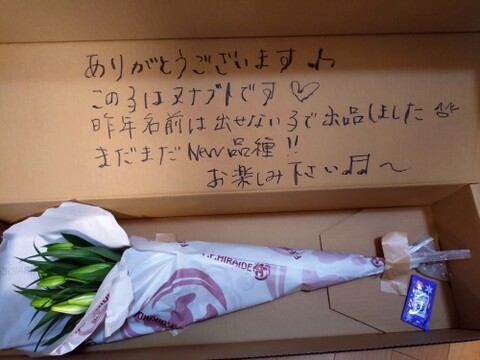 ありがとうございます♪
この子はヌナブトです♡
昨年名前は出せない子で出品しました
まだまだNew品種!!
お楽しみ下さい♬〜
HIRAIDE